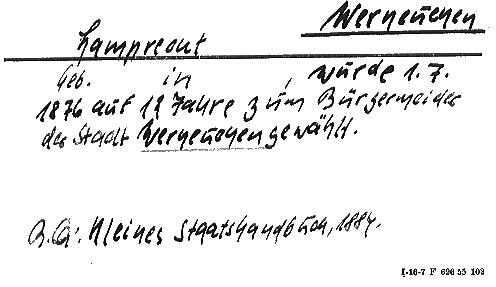 Werneuchen
Lamprecht
Geb. in , wurde 1.7.
1876 auf 12 Jahre zum Bürgermeister
der Stadt Werneuchen gewählt.
Kleines Staatshandbuch, 1884.
I-16-7 F 696 53 103